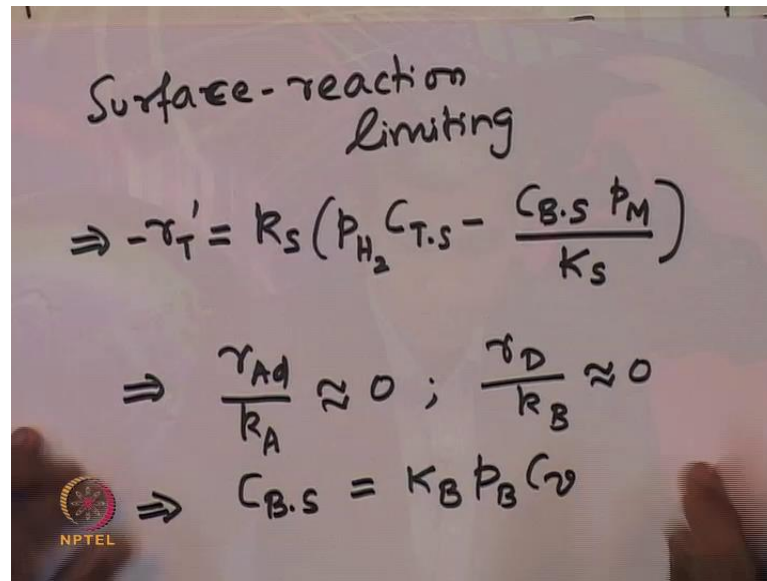 Surface-reaction
limiting
⇒ -r_T' = k_S (P_{H_2} C_{T.S} - \frac{C_{B.S} P_M}{K_S})
⇒ \frac{r_{Ad}}{k_A} ≈ 0 ; \frac{r_D}{k_B} ≈ 0
⇒ C_{B.S} = K_B P_B C_v
NPTEL